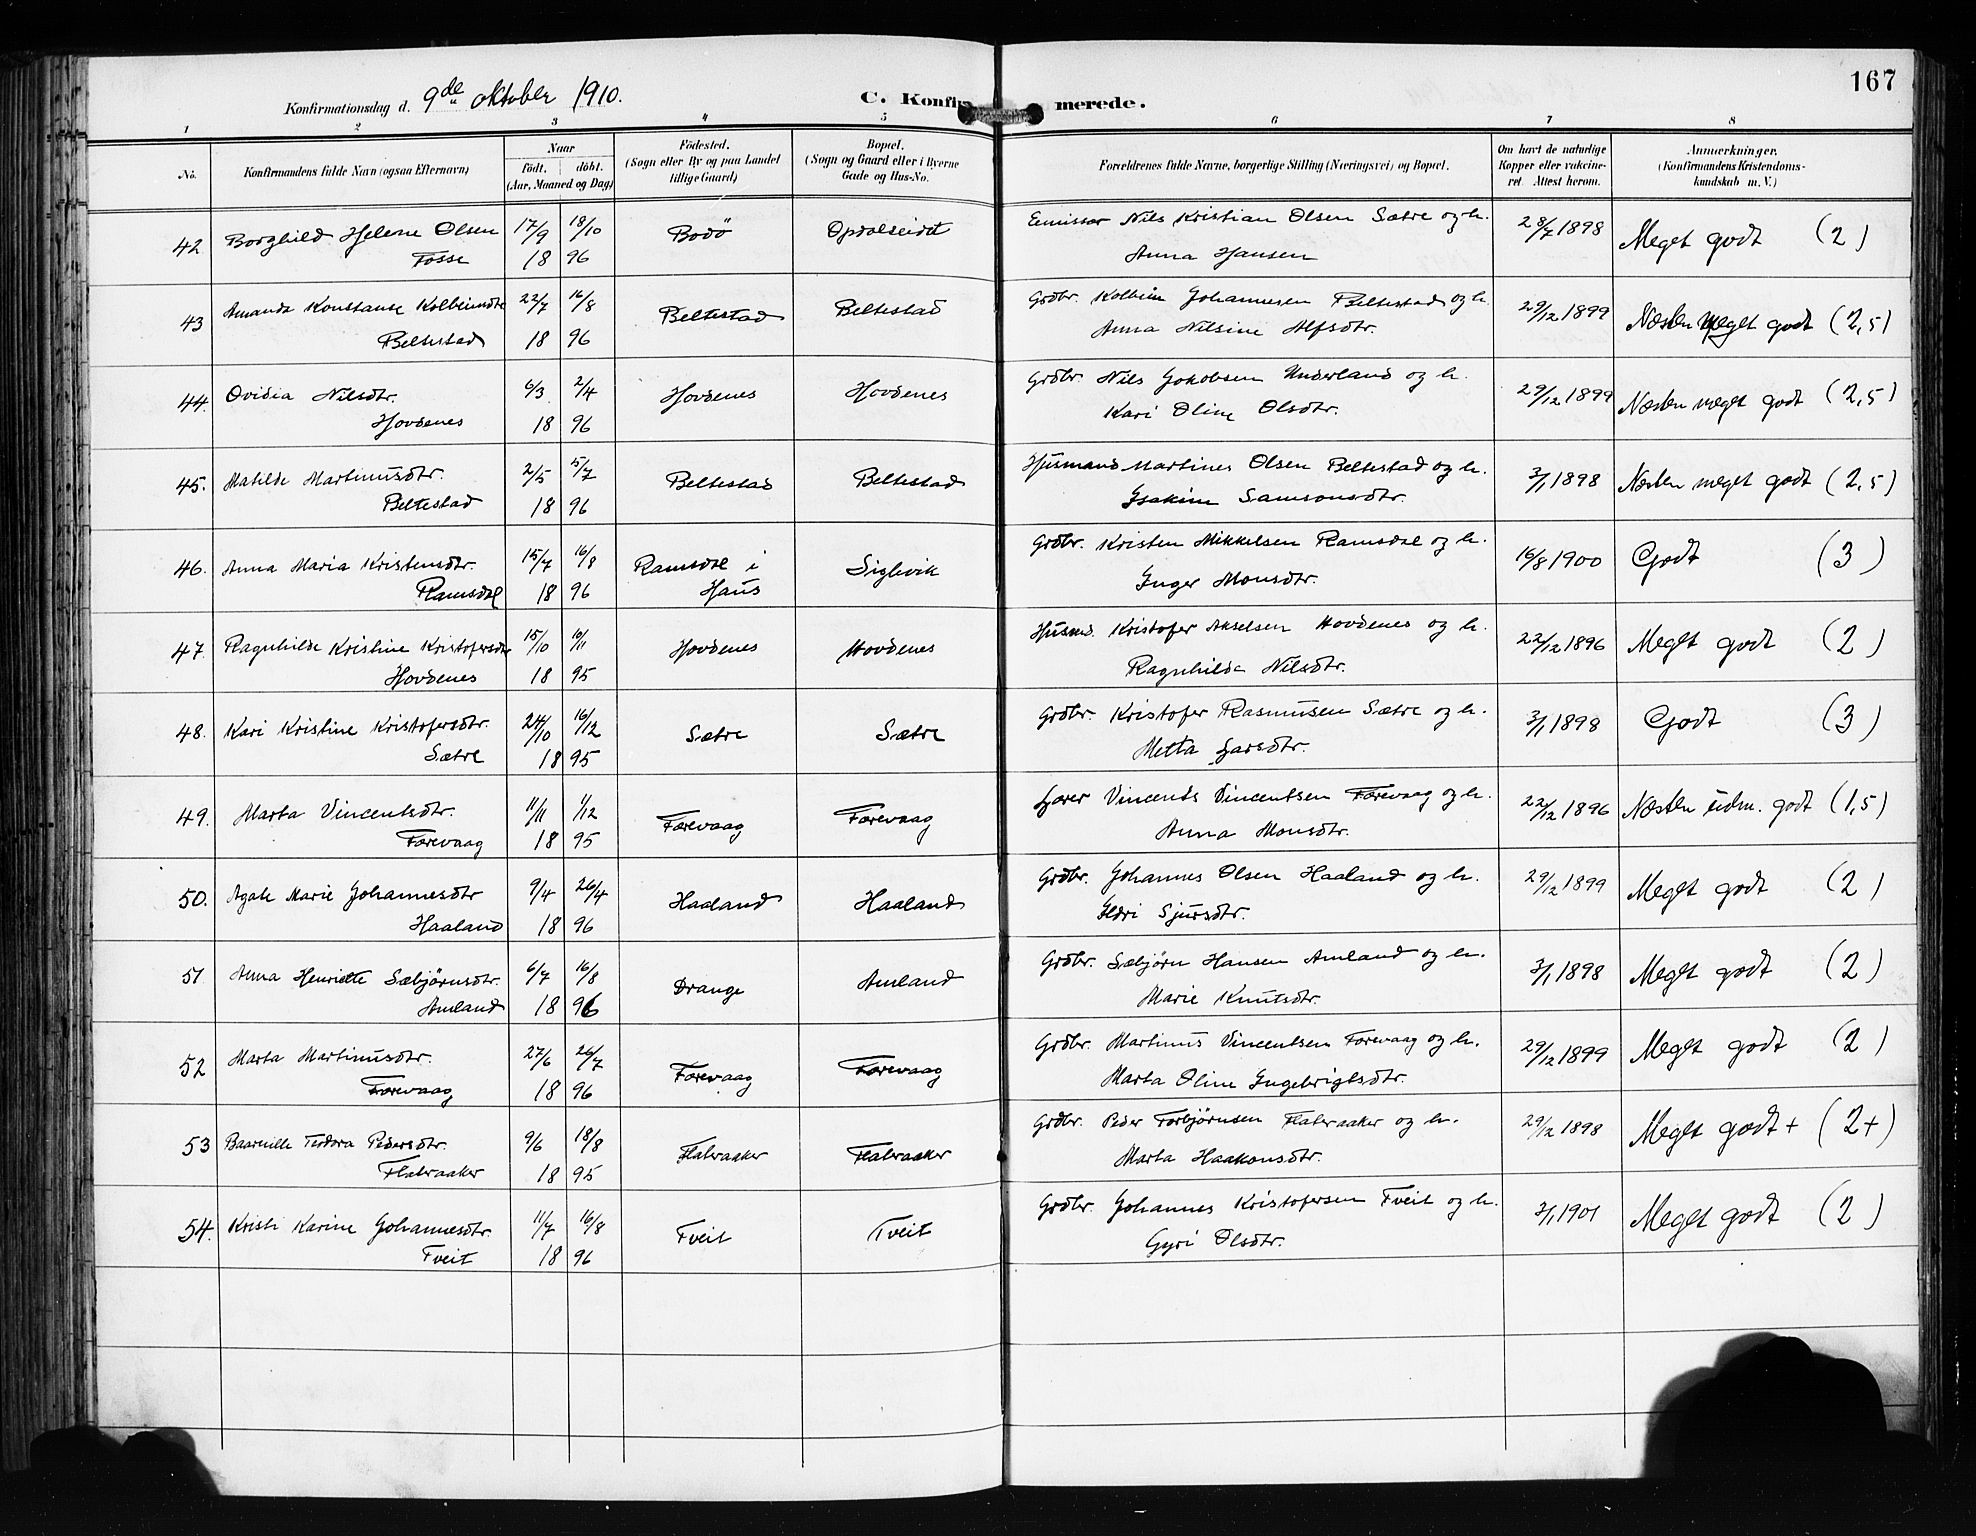 167
Konfirmationsdag d. 9de oktober 1910. C. Konfirmerede.
1 2 3 4 5 6 7 8
No. Konfirmandens fulde Navn (ogsaa Efternavn) Naar födt. döbt. (Aar, Maaned og Dag) Födested. (Sogn eller By og paa Landet tillige Gaard) Bopæl. (Sogn og Gaard eller i Byerne Gade og Hus-No. Forældrenes fulde Navne, borgerlige Stilling (Næringsvei) og Bopæl. Om havt de naturlige Kopper eller vakcineret. Attest herom. Anmærkninger. (Konfirmandens Kristendomskundskab m. V.)
42 Borghild Helene Olsen 17/9 18/10 Bodö Opdalseidet Emissær Nils Kristian Olsen Sætre og h. 28/7 1898 Meget godt (2)
Fosse 18 96 Anna Hansen
43 Amanda Konstanse Kolbeinsdtr 22/7 16/8 Beltestad Beltestad Grdbr. Kolbein Johannesen Beltestad og h. 29/12 1899 Næsten meget godt (2,5)
Beltestad 18 96 Anna Nilsine Alfsdtr.
44. Ovidia Nilsdtr. 6/3 2/4 Hovdenes Hovdenes Grdbr. Nils Jakobsen Underland og h. 29/12 1899 Næsten meget godt (2,5)
Hovdenes 18 96 Kari Oline Olsdtr.
45. Matilde Martinusdtr. 2/5 5/7 Beltestad Beltestad Husmand Martines Olsen Beltestad og h. 3/1 1898 Næsten meget godt (2,5)
Beltestad 18 96 Isakine Samsonsdtr.
46. Anna Maria Kristensdtr. 15/7 16/8 Ramsdal i Haus Siglevik Grdbr. Kristen Mikkelsen Ramsdal og h. 16/8 1900 Godt (3)
Ramsdal 18 96 Inger Monsdtr.
47. Ragnhilde Kristine Kristofersdtr 15/10 10/11 Hovdenes Hovdenes Husmd. Kristofer Akselsen Hovdenes og h. 22/12 1896 Meget godt (2)
Hovdenes 18 95 Ragnhilda Nilsdtr.
48. Kari Kristine Kristofersdtr. 24/10 16/12 Sætre Sætre Grdbr. Kristofer Rasmusen Sætre og h. 3/1 1898 Godt (3)
Sætre 18 95 Metta Larsdtr.
49. Marta Vincentsdtr. 11/11 1/12 Forevaag Forevaag Lærer Vincents Vincentsen Forevaag og h. 22/12 1896 Næsten udm. godt (1,5)
Forevaag 18 95 Anna Monsdtr.
50. Agate Marie Johannesdtr 9/4 26/4 Haaland Haaland Grdbr. Johannes Olsen Haaland og h. 29/12 1899 Meget godt (2)
Haaland 18 96 Ildri Sjursdtr.
51 Anna Henriette Sæbjørnsdtr. 6/7 16/8 Drange Amland Grdbr. Sæbjørn Hansen Amland og h. 3/1 1898 Meget godt (2)
Amland 18 96 Marie Knutsdtr.
52 Marta Martinusdtr. 27/6 26/7 Forevaag Forevaag Grdbr. Martinus Vincentsen Forevaag og h. 29/12 1899 Meget godt (2)
Forevaag 18 96 Marta Oline Ingebrigtsdtr.
53 Teodora Pedersdtr. 9/6 18/8 Flateraaker Flateraaker Grdbr. Peder Torbjörnsen Flateraaker og h. 29/12 1898 Meget godt + (2+)
Flateraaker 18 95 Marta Haakonsdtr.
54. Kristi Karine Johannesdtr. 11/7 16/8 Tveit Tveit Grdbr. Johannes Kristofersen Tveit og h. 3/1 1901 Meget godt (2)
Tveit 18 96 Gyri Olsdtr.